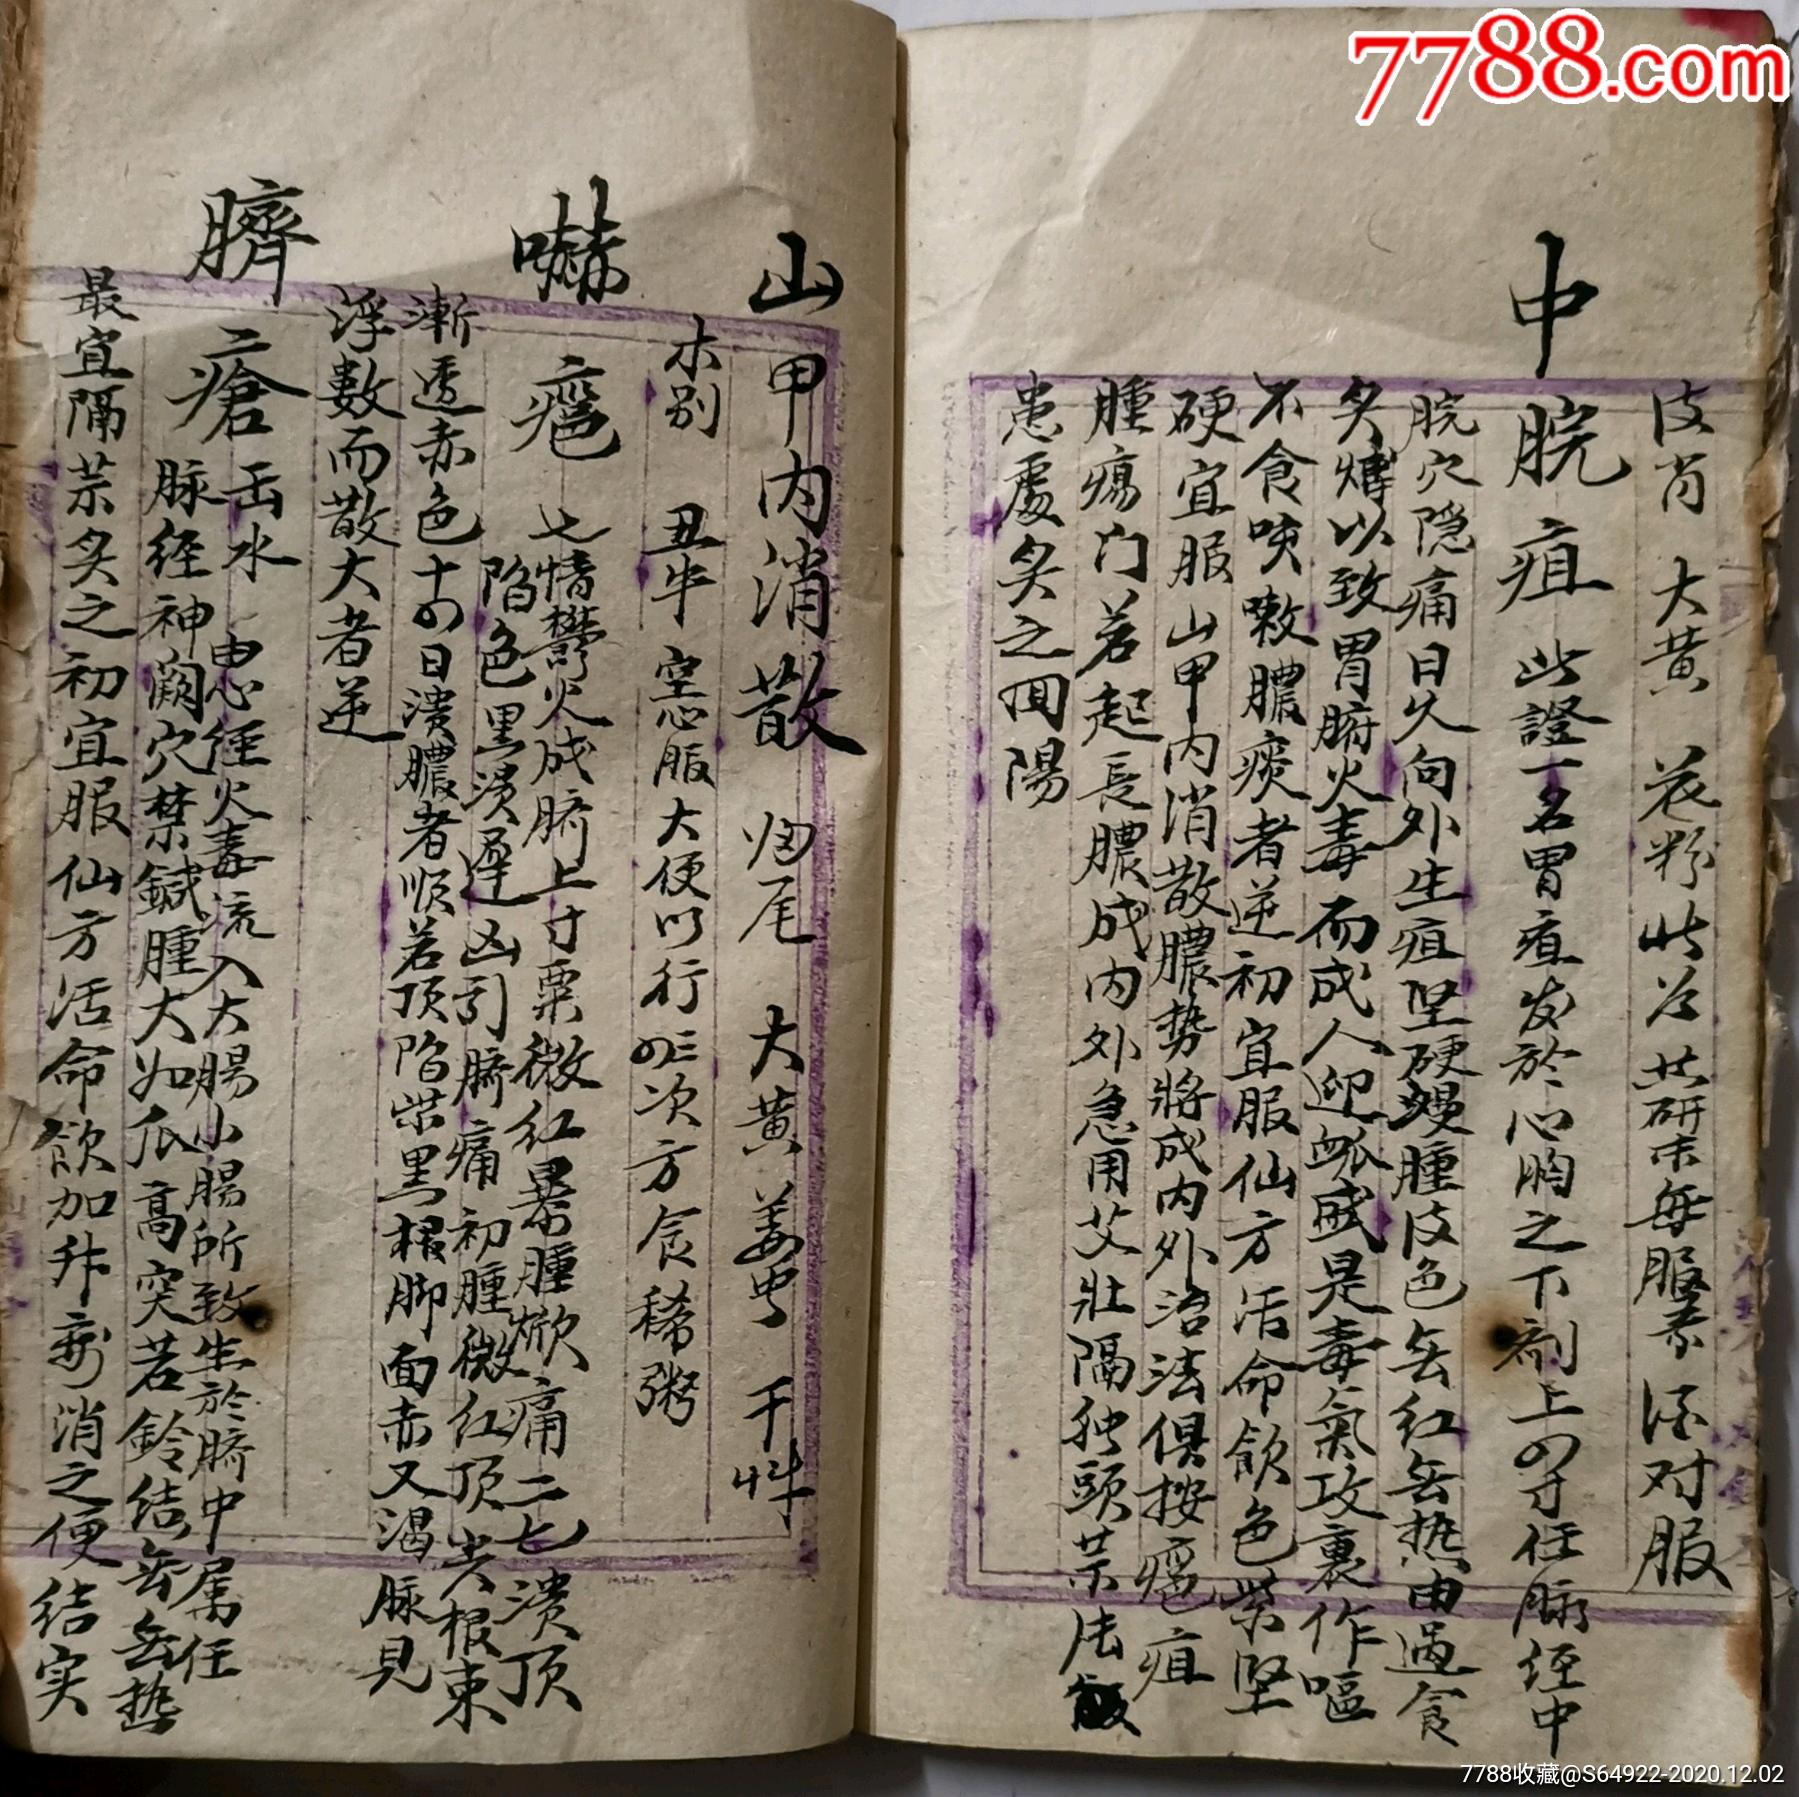 7788.com
皮肖 大黄 花粉 此为共研末每服 酒对服
中脘疽 此證一名胃疽发於心胷之下 上四寸任脉经中
脘穴隐痛日久向外生疽坚硬漫腫皮色無红無热由过食
炙煿以致胃腑火毒而成人迎脉盛是毒氣攻裏作嘔
不食咳嗽膿痰者逆初宜服仙方活命飲色紫坚
硬宜服山甲内消散膿势將成内外治法俱按癰疽
腫瘍门若起長膿成内外急用艾壯隔独頭蒜法
患處炙之回陽
山甲内消散 归尾 大黄 姜虫 干草
木别 丑牛 空心服大便以行三四次方食稀粥
嚇癰 七情鬱火成脐上寸粟微红暴腫焮痛二七潰顶
陷色黑潰遲凶引脐痛初腫微红顶尖根束
漸透赤色十四日潰膿者顺若顶陷紫黑根脚面赤又渴脉見
浮數而散大者逆
臍瘡 缶水 由心经火毒流入大腸小腸所致生於脐中属任
脉经神阙穴禁鍼腫大如瓜高突若鈴结無無热
最宜隔蒜炙之初宜服仙方活命飲加升 消之便结实
7788收藏@S64922-2020.12.02